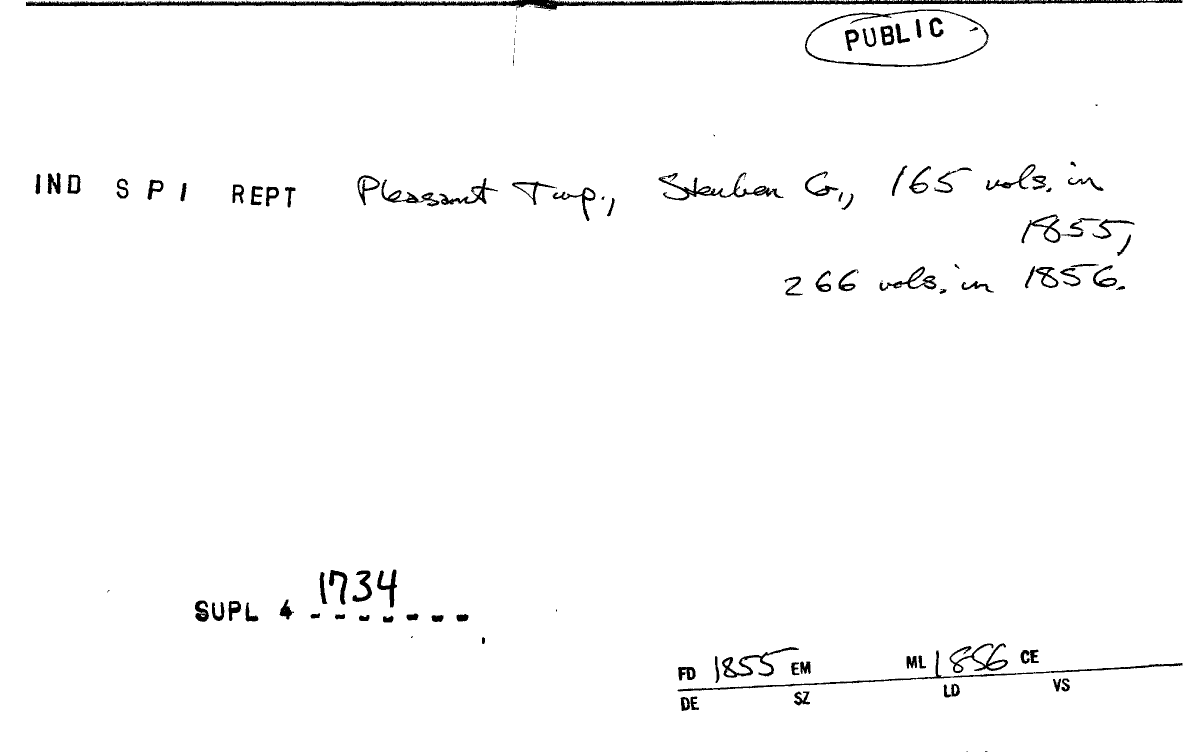 PUBLIC
IND S P I REPT Pleasant Twp., Steuben Co., 165 vols. in
1855,
266 vols. in 1856.
1734
SUPL 4 - - - - - - -
FD 1855 EM ML 1856 CE
DE SZ LD VS